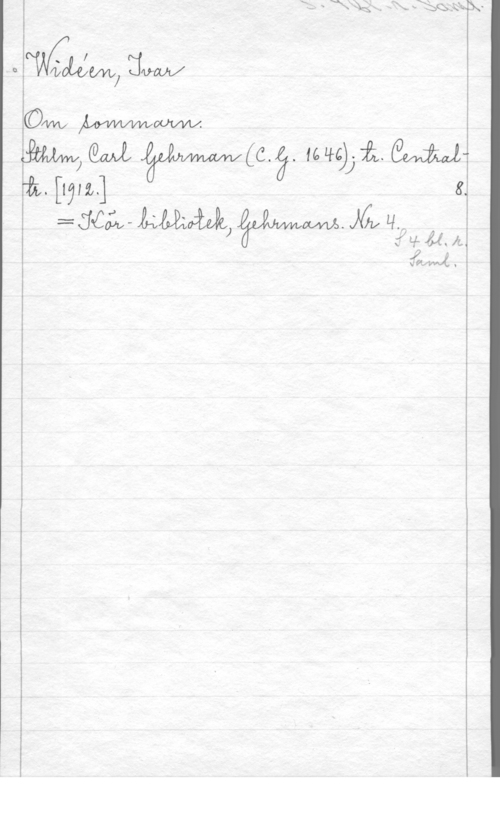 Widéen, Ivar
Om sommarn.
Sthlm, Carl Gehrman (C. G. 1646); tr. Central-
tr. [1912.] 8.
= Kör-bibliotek, Gehrmans. Nr 4.
S 4 bl. r.
Saml.